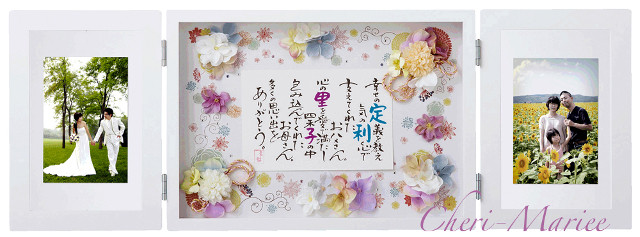 幸せの定義を教え
気利く心で
支えてくれた
お父さん。
心の里を愛で満たし
包み込んでくれた
お母さん。
多くの思い出を
ありがとう。
Cheri-Mariee